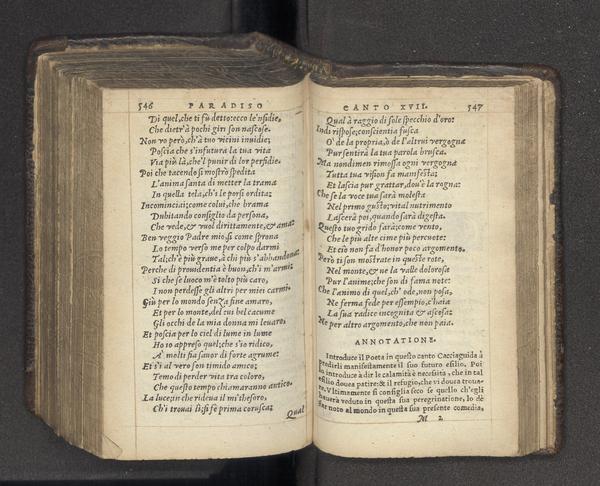 546 PARADISO
Di quel, che ti fù detto: ecco le'nsidie,
Che dietr'à pochi giri son nascose.
Non vo però, ch'à tuo vicini inuidie;
Poscia che s'infutura la tua vita
Via più là, che'l punir di lor perfidie.
Poi che tacendo si mostrò spedita
L'anima santa di metter la trama
In quella tela, ch'i le porsi ordita;
Incominciai; come colui, che brama
Dubitando consiglio da persona,
Che vede, & vuol dirittamente, & ama:
Ben veggio Padre mio, si come sprona
Lo tempo verso me per colpo darmi
Tal; ch'è più graue, à chi più s'abbandona:
Perche di prouidentia è buon, ch'i m'armi;
Si che se luoco m'è tolto più caro,
I non perdesse gli altri per miei carmi.
Giù per lo mondo senza fine amaro,
Et per lo monte, del cui bel cacume
Gli occhi de la mia donna mi leuaro,
Et poscia per lo ciel di lume in lume
Ho io appreso quel; che s'io ridico,
A' molti fia sauor di forte agrume:
Et s'i al vero son timido amico;
Temo di perder vita tra coloro,
Che questo tempo chiamaranno antico.
La luce; in che ridena il mi'thesoro,
Ch'i trouai lì; si fè prima corusca;
Qual
CANTO XVII. 547
Qual à raggio di sole specchio d'oro:
Indi rispose; conscientia fusca
O' de la propria, ò de l'altrui vergogna
Pur sentirà la tua parola brusca.
Ma nondimen rimossa ogni vergogna
Tutta tua vision fa manifesta;
Et lascia pur grattar, dou'è la rogna:
Che se la voce tua sarà molesta
Nel primo gusto; vital nutrimento
Lascerà poi, quando sarà digesta.
Questo tuo grido farà; come vento,
Che le più alte cime più percuote:
Et ciò non fa d'honor poco argomento.
Però ti son mostrate in queste rote,
Nel monte, & ne la valle dolorosa
Pur l'anime; che son di fama note:
Che l'animo di quel, ch'ode, non posa,
Ne ferma fede per essempio, c'haia
La sua radice incognita & ascosa;
Ne per altro argomento, che non paia.
ANNOTATIONE.
Introduce il Poeta in questo canto Cacciaguida à
predirli manifestamente il suo futuro essilio. Poi
lo introduce à dir le calamità è necessità, che in tal
essilio douea patire: & il refugio, che vi douea troua-
re. Vltimamente si consiglia seco se quello ch'egli
hauerà veduto in questa sua peregrinatione, lo dè
far noto al mondo in questa sua presente comedia,
M 2